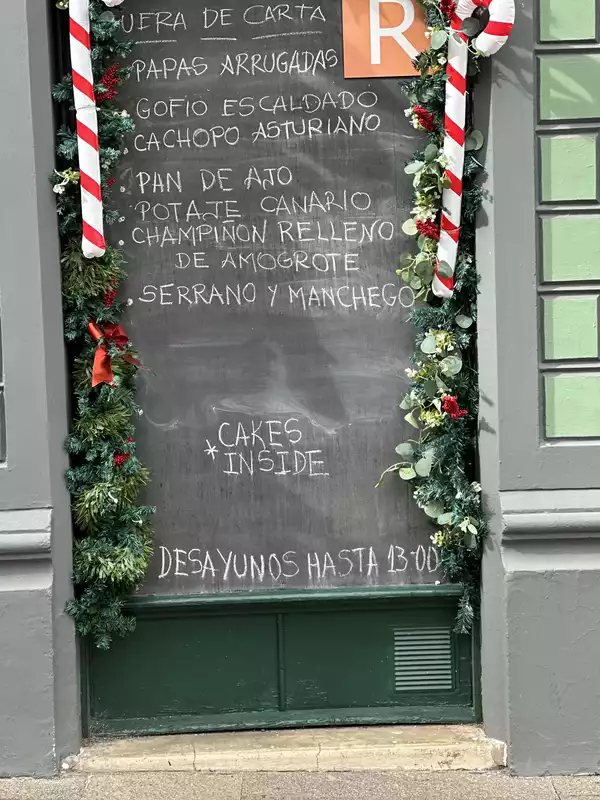 FUERA DE CARTA
R
PAPAS ARRUGADAS
GOFIO ESCALDADO
CACHOPO ASTURIANO
PAN DE AJO
POTAJE CANARIO
CHAMPIÑON RELLENO
DE AMOGROTE
SERRANO Y MANCHEGO
*CAKES
INSIDE
DESAYUNOS HASTA 13:00